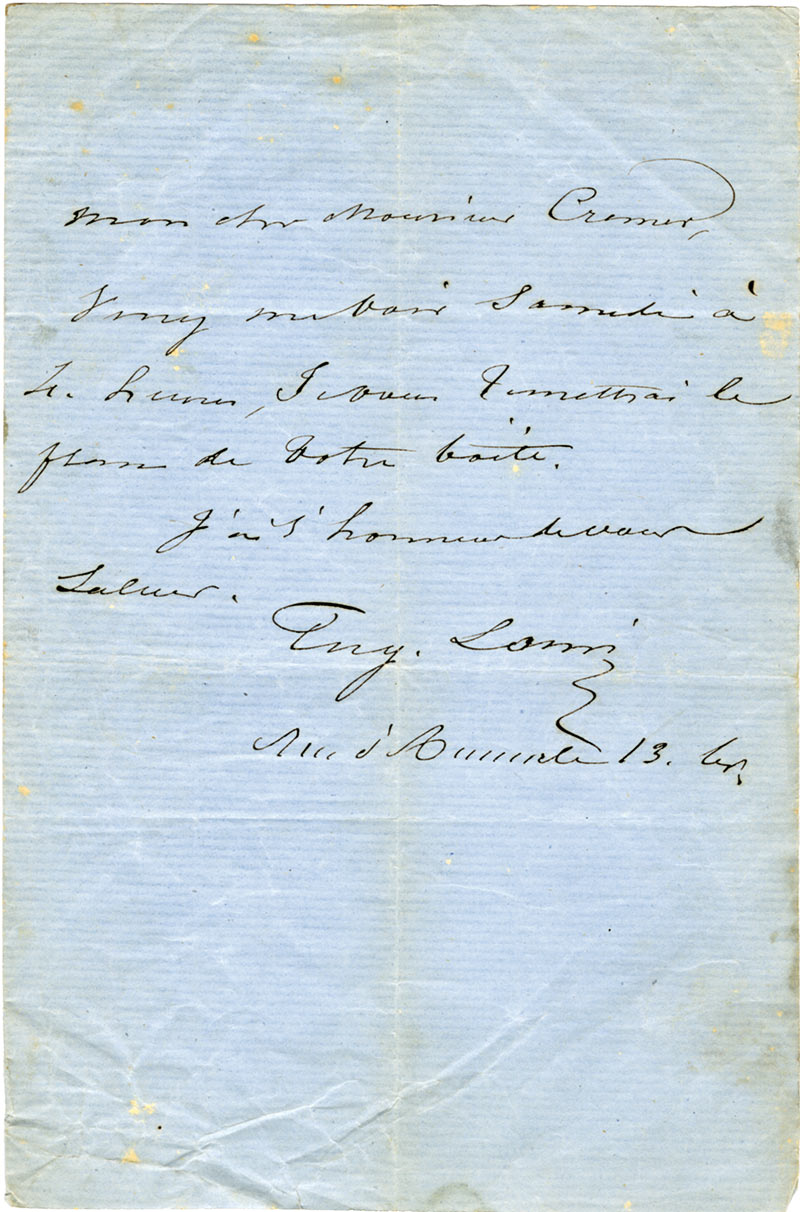 Mon cher Monsieur Cremer,
Venez me voir Samedi à
4. heures, Je vous remettrai le
plan de votre boîte.
J'ai l'honneur de vous
Saluer.
Eug. Lami
Rue d'Aumale 13.